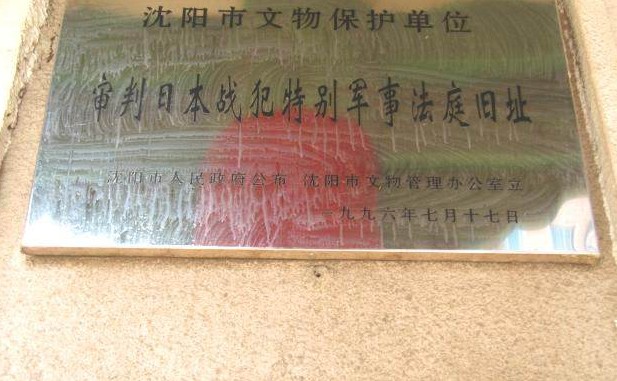 沈阳市文物保护单位
审判日本战犯特别军事法庭旧址
沈阳市人民政府公布 沈阳市文物管理办公室立
一九九六年七月十七日